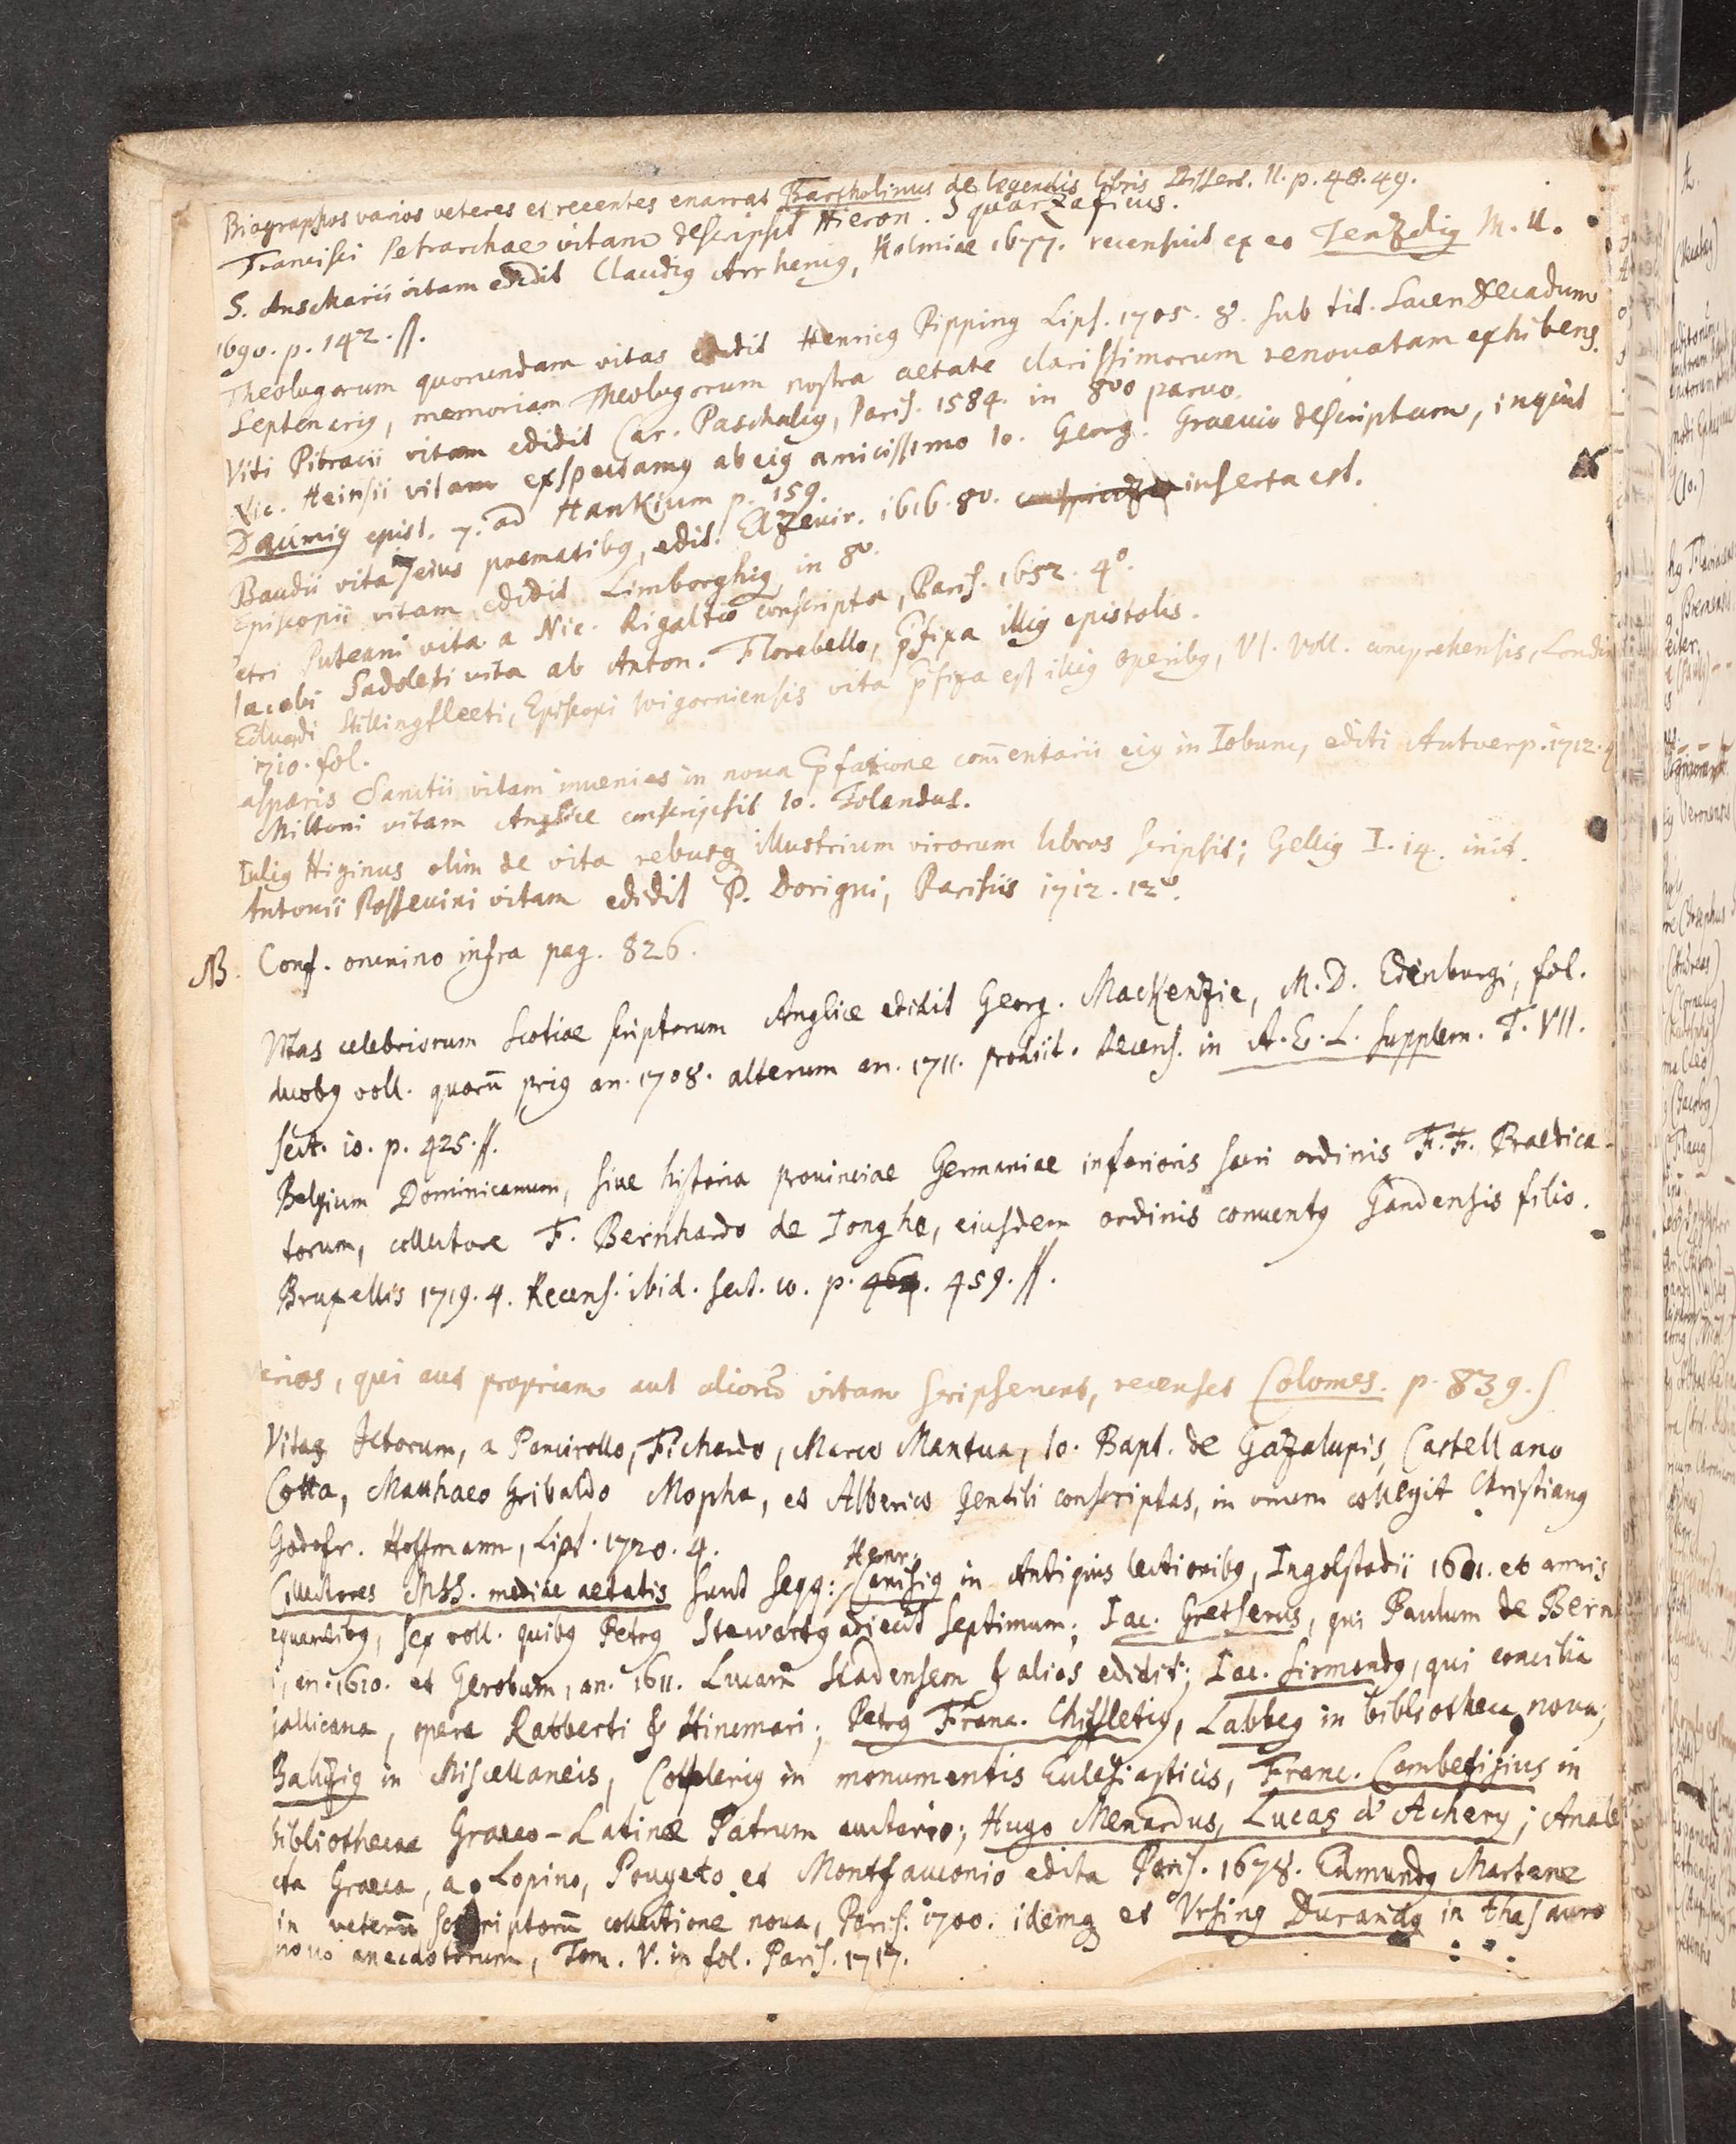 Biographos varios veteres et recentes enarrat Bartholinus de legendis libris Dissert. II. p. 48. 49.
Francisci Petrarchae vitam descripsit Hieron. Squarzaficus.
S. Anscharii vitam edidit Claudiꝰ Arrheniꝰ, Holmiae 1677. recensuit ex eo Tenzeliꝰ M. U.
1690. p. 142. ſſ.
Theologorum quorundam vitas edidit Henricꝰ Pipping Lips. 1705. 8. sub tit. Sacer Decadum
Septenariꝰ, memoriam Theologorum nostra aetate clarissimorum renovatam exhibens.
Viti Pibracii vitam edidit Car. Paschaliꝰ, Paris. 1584. in 8vo parvo.
Nic. Heinsii vitam exspectamꝰ ab eiꝰ amicissimo Io. Georg. Graevio descriptam, inquit
Daumiꝰ epist. 7. ad Hankium p. 159.
Baudii vita eius poematibꝰ, edit. Elzevir. 1616. 8o. inserta est.
Episcopii vitam edidit Limborghiꝰ in 8o.
Petri Puteani vita a Nic. Rigaltio conscripta, Paris. 1652. 4o.
Iacobi Sadoleti vita ab Anton. Florebello, p̄fixa illiꝰ epistolis.
Eduardi Stillingfleeti, Episcopi Wigorniensis vita p̄fixa est illiꝰ operibꝰ, VI. Voll. comprehensis, Londin
1710. fol.
asparis Sanctii vitam invenies in nova p̄fatione com̄entarii eiꝰ in Iobum, editi Antverp. 1712. 4
Miltoni vitam Anglice conscripsit Io. Tolandus.
Iuliꝰ Higinus olim de vita rebusq illustrium virorum libros scripsit; Gelliꝰ I. 14. init.
Antonii Possevini vitam edidit P. Dorigni, Parisiis 1712. 12o.
NB. Conf. omnino infra pag. 826.
Vitas celebriorum Scotiae scriptorum Anglice edidit Georg. MacKenzie, M. D. Edenburgi, fol.
duobꝰ voll. quorū priꝰ an. 1708. alterum an. 1711. prodiit. Recens. in A. E. L. Supplem. T. VII.
sect. 10. p. 425. ſſ.
Belgium Dominicanum, sive historia provinciae Germaniae inferioris sacri ordinis F. F. Praedica-
torum, collectore F. Bernhardo de Ionghe, eiusdem ordinis conventꝰ Gandensis filio.
Bruxellis 1719. 4. Recens. ibid. sect. 10. p. 464. 459. ſſ.
Varios, qui aut propriam aut aliorū vitam scripserunt, recenset Colomes. p. 839. ſ
Vitas Ictorum, a Pancirollo, Fichardo, Marco Mantua, Io. Bapt. de Gazalupis, Castellano
Cotta, Matthaeo Gribaldo Mopha, et Alberico Gentili conscriptas, in unum collegit Christianꝰ
Godofr. Hoffmann, Lips. 1720. 4.
Collectores MSS. mediae aetatis sunt seqq: Henr. Canisiꝰ in Antiquis lectionibꝰ, Ingolstadii 1601. et annis
equentibꝰ, sex voll. quibꝰ Petrꝰ Stewartꝰ adiecit septimum; Iac. Gretserus, qui Paulum de Bern
, an. 1610. et Gerohum, an. 1611. Lucam Tudensem & alios edidit; Iac. Sirmondꝰ, qui concilia
Gallicana, opera Ratberti & Hincmari; Petrꝰ Franc. Chiffletiꝰ, Labbeꝰ in bibliotheca nova;
Baluziꝰ in Miscellaneis, Coteleriꝰ in monumentis Ecclesiasticis, Franc. Combefisius in
bibliothecae Graeco-Latinae Patrum auctario; Hugo Menardus, Lucas d' Achery; Anale
cta Graeca, a Lopino, Pougeto et Montfauconio edita Paris. 1678. Edmundꝰ Martene
in veterū scriptorū collectione nova, Paris. 1700. idemq et Ursinꝰ Durandꝰ in thesauro
novo anecdotorum, Tom. V. in fol. Paris. 1717.